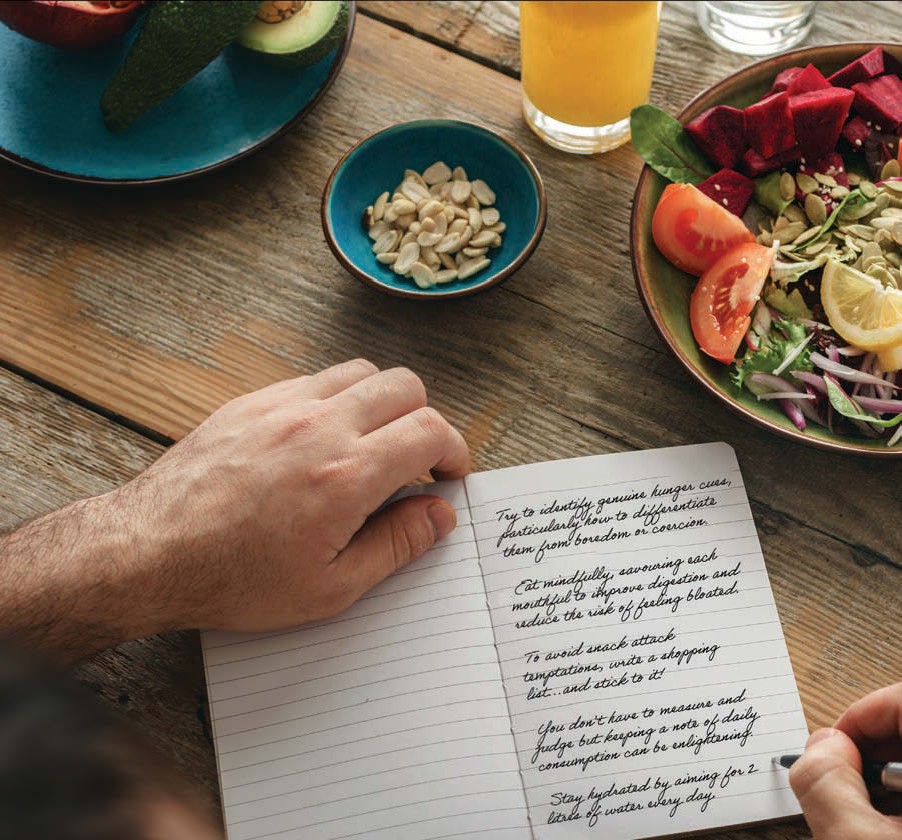 Try to identify genuine hunger cues,
particularly how to differentiate
them from boredom or coercion.
Eat mindfully, savouring each
mouthful to improve digestion and
reduce the risk of feeling bloated.
To avoid snack attack
temptations, write a shopping
list...and stick to it!
You don't have to measure and
judge but keeping a note of daily
consumption can be enlightening.
Stay hydrated by aiming for 2
litres of water every day